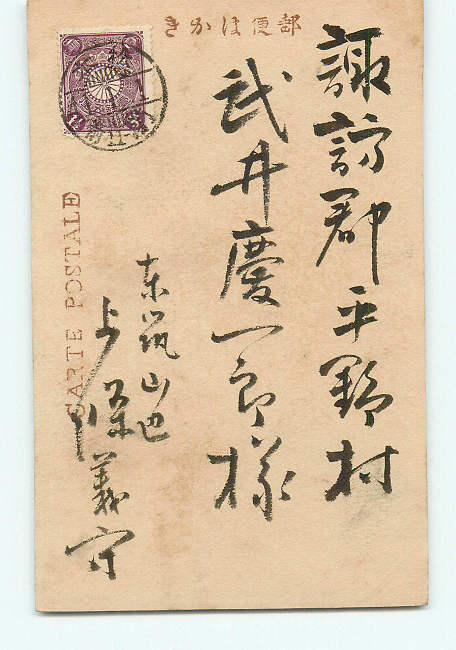 郵便はかき
諏訪郡平野村
武井慶一郎様
東筑山辺
上條義守
CARTE POSTALE